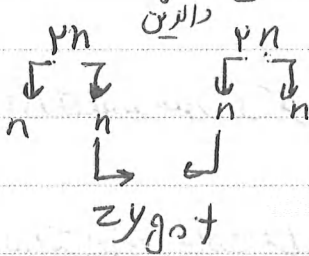 والدین
۲n ۲n
n n n n
zygot